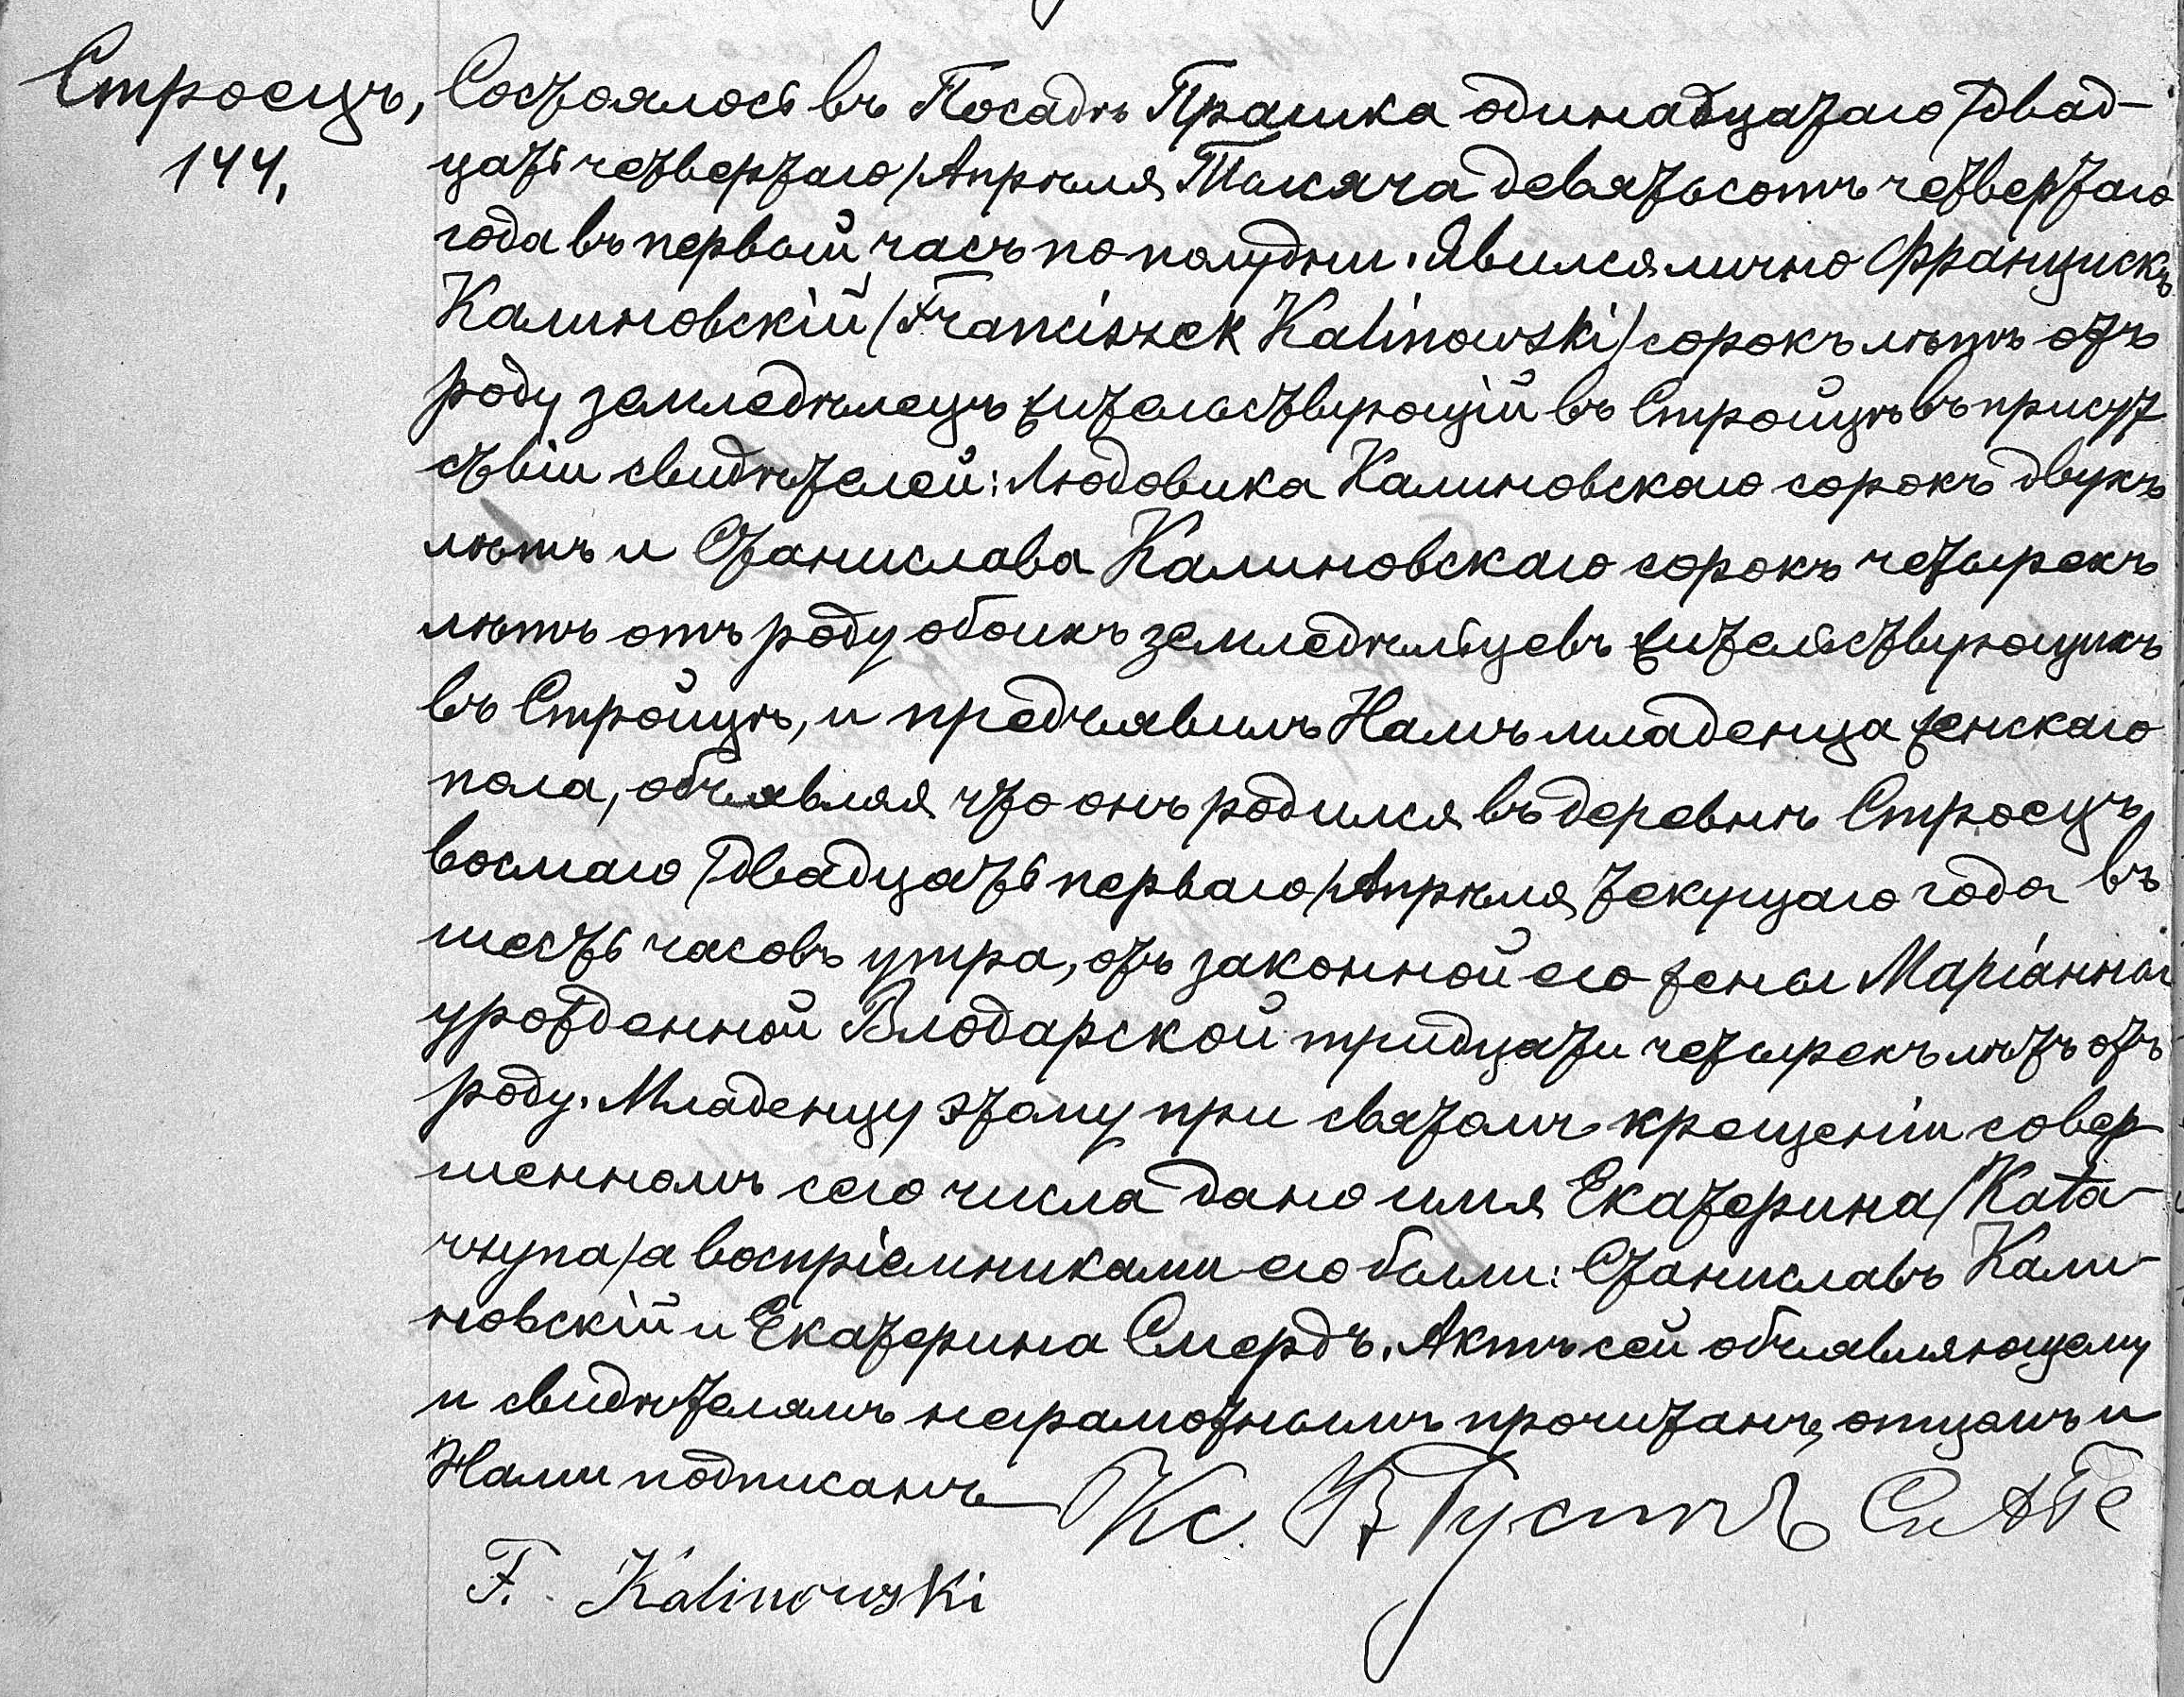 Строецъ,
144,
Состоялось въ Посадѣ Прашка одинадцатаго/двад-
цать четвертаго/Апрѣля Тысяча девятьсотъ четвертаго
года въ первый часъ по полудни. Явился лично Францискъ
Калиновскій/Franciszek Kalinowski/сорокъ лѣтъ отъ
роду земледѣлецъ жительствующій въ Стройцѣ въ присут
ствіи свидѣтелей: Людовика Калиновскаго сорокъ двухъ
лѣтъ и Станислава Калиновскаго сорокъ четырехъ
лѣтъ отъ роду обоихъ земледѣльцевъ жительствующихъ
въ Стройцѣ, и предъявилъ Намъ младенца женскаго
пола, объявляя что онъ родился въ деревнѣ Строецъ
восмаго/двадцать перваго/Апрѣля текущаго года въ
шесть часовъ утра, отъ законной его жены Маріанны
урожденной Влодарской тридцати четырехъ лѣтъ отъ
роду. Младенцу этому при святомъ крещеніи совер-
шенномъ сего числа дано имя Екатерина/Kata-
rzyna/а воспріемниками его были: Станиславъ Кали-
новскій и Екатерина Смердъ. Актъ сей объявляющему
и свидѣтелямъ неграмотнымъ прочитанъ, отцомъ и
Нами подписанъ
Кс. В Густъ
F. Kalinowski